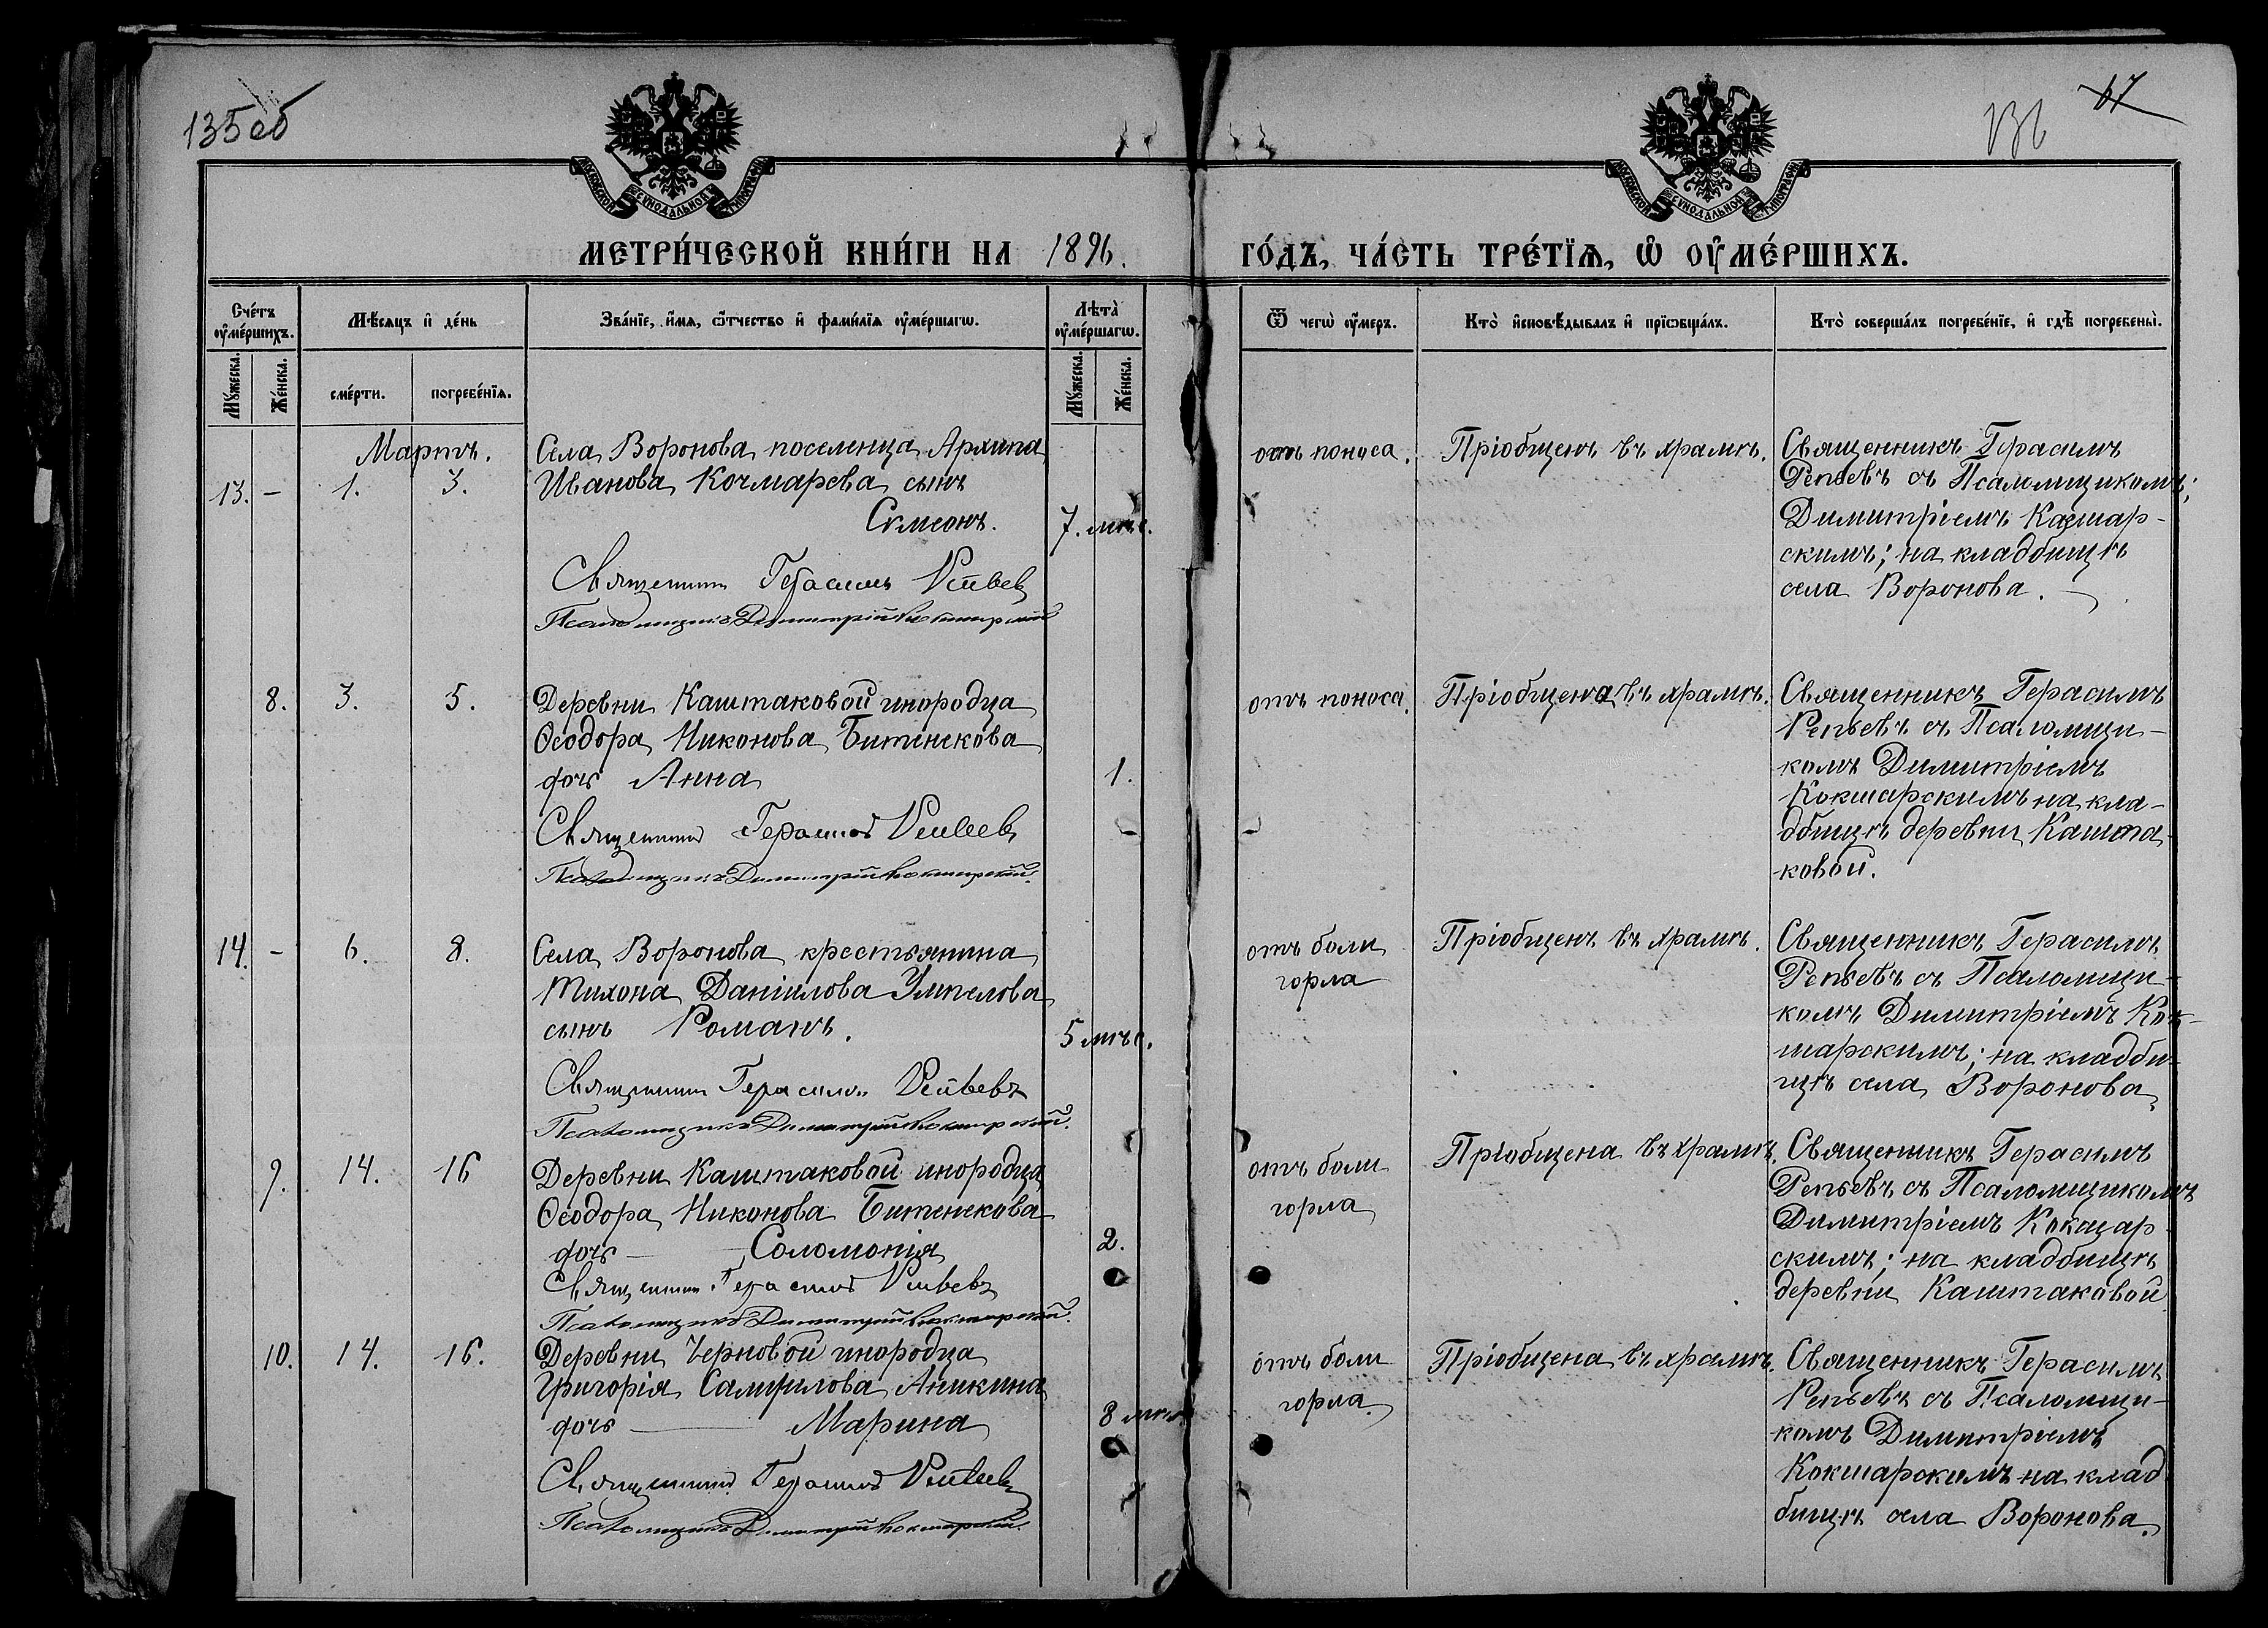 135 об
136
67
МОСКОВСКОЙ СѴНОДАЛЬНОЙ ТИПОГРАФІИ
МОСКОВСКОЙ СѴНОДАЛЬНОЙ ТИПОГРАФІИ
МЕТРИ́ЧЕСКОЙ КНИ́ГИ НА 1896.
ГО́ДЪ, ЧА́СТЬ ТРЕ́ТІѦ, Ѡ҆ ОУ҆МЕ́РШИХЪ.
Сче́тъ оу҆ме́ршихъ.
Мꙋ́жеска.
Же́нска.
Мѣ́сѧцъ и҆ де́нь
сме́рти.
погребе́нїѧ.
Зва́нїе, и҆́мѧ, ѻ҆́тчество и҆ фами́лїѧ оу҆ме́ршагѡ.
Лѣта̀ оу҆ме́ршагѡ.
Мꙋ́жеска.
Же́нска.
Ѿ чегѡ̀ оу҆́меръ.
Кто̀ и҆сповѣ́дывалъ и҆ прїѡбща́лъ.
Кто̀ соверша́лъ погребе́нїе, и҆ гдѣ̀ погребены̀.
Мартъ.
13. - 1. 3.
Села Воронова поселенца Архипа
Иванова Кочмарева сынъ
Симеонъ.
7. мѣс.
Священникъ Герасимъ Репьевъ
Псаломщикъ Димитрій Кокшарскій
отъ поноса.
Пріобщенъ въ храмѣ.
Священникъ Герасимъ
Репьевъ съ Псаломщикомъ;
Димитріемъ Кокшар-
скимъ; на кладбищѣ
села Воронова.
8. 3. 5.
Деревни Каштаковой инородца
Ѳеодора Никонова Битенекова
дочь Анна
1.
Священникъ Герасимъ Репьевъ
Псаломщикъ Димитрій Кокшарскій.
отъ поноса.
Пріобщена въ храмѣ.
Священникъ Герасимъ
Репьевъ съ Псаломщи-
комъ Димитріемъ
Кокшарскимъ на кла-
дбищѣ деревни Кашта-
ковой.
14. - 6. 8.
Села Воронова крестьянина
Тихона Даніилова
сынъ Романъ.
5 мѣс.
Священникъ Герасимъ Репьевъ
Псаломщикъ Димитрій Кокшарскій.
отъ боли
горла
Пріобщенъ въ храмѣ.
Священникъ Герасимъ
Репьевъ съ Псаломщи-
комъ Димитріемъ Кок-
шарскимъ; на кладби-
щѣ села Воронова
9. 14. 16
Деревни Каштаковой инородца
Ѳеодора Никонова Битенекова
дочь — Соломонія
2.
Священникъ Герасимъ Репьевъ
Псаломщикъ Димитрій Кокшарскій.
отъ боли
горла
Пріобщена въ храмѣ.
Священникъ Герасимъ
Репьевъ съ Псаломщикомъ
Димитріемъ Кокшар
скимъ; на кладбищѣ
деревни Каштаковой
10. 14. 16.
Деревни Черновой инородца
Григорія Аникина
дочь — Марина
8 мѣс
Священникъ Герасимъ Репьевъ
Псаломщикъ Димитрій Кокшарскій.
отъ боли
горла.
Пріобщена въ храмѣ.
Священникъ Герасимъ
Репьевъ съ Псаломщи-
комъ Димитріемъ
Кокшарскимъ на клад
бищѣ села Воронова.